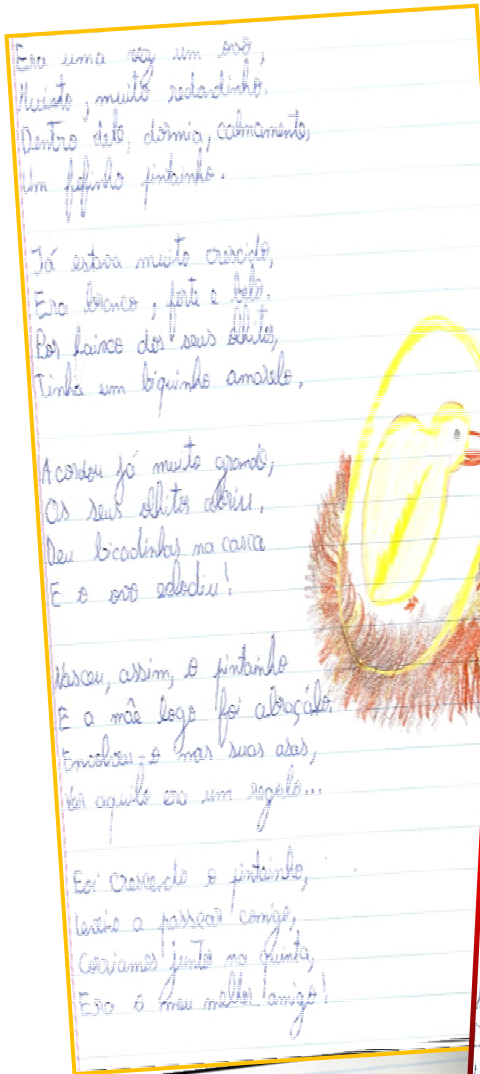 Era uma vez um ovo,
Muito, muito redondinho.
Dentro dele, dormia, calmamente,
Um fofinho pintainho.
Já estava muito crescido,
Era branco, forte e belo.
Por baixo dos seus olhitos,
Tinha um biquinho amarelo.
Acordou já muito grande,
Os seus olhitos abriu,
Deu bicadinhas na casca
E o ovo eclodiu!
Nasceu, assim, o pintainho
E a mãe logo foi abraçálo.
Envolveu-o nas suas asas,
Ver aquilo era um regalo...
Foi crescendo o pintainho,
a passear comigo,
Corriamos juntos na quinta,
Era o meu melhor amigo!